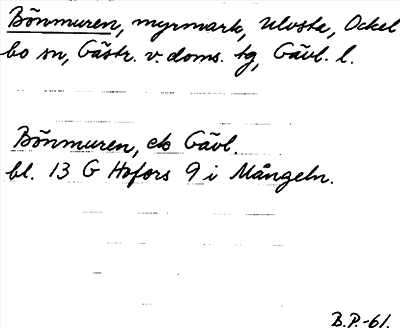 Bönmuren, myrmark, Ulvsta, Ockel
bo sn, Gästr. v. doms. tg, Gävl. l.
Bönmuren, ek Gävl.
bl. 13 G Hofors 9 i Mångeln.
B.P.-61.